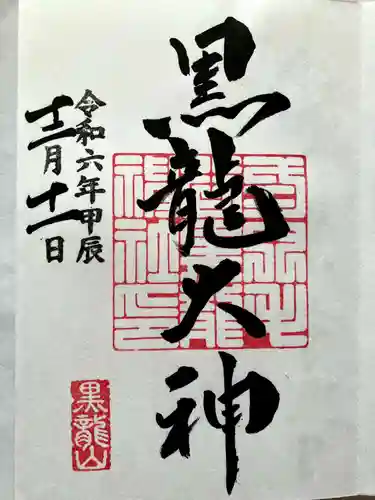 黒龍大神
令和六年甲辰
十二月十一日
黒龍山